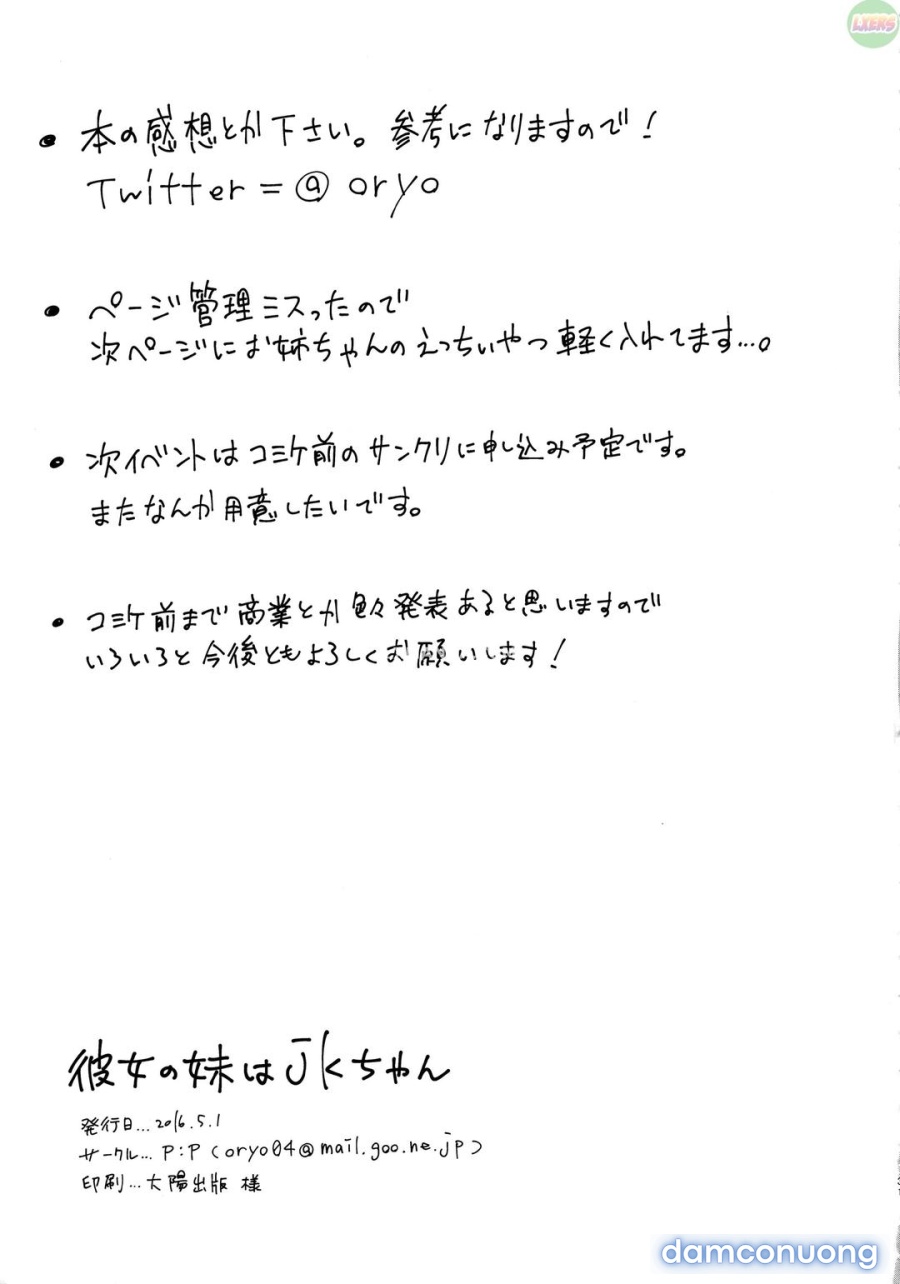 LXERS
• 本の感想とか下さい。参考になりますので！
Twitter = @ oryo
• ページ管理ミスったので
次ページにお姉ちゃんのえっちぃやつ軽く入れてます…。
• 次イベントはコミケ前のサンクリに申し込み予定です。
またなんか用意したいです。
• コミケ前まで商業とか色々発表あると思いますので
いろいろと今後ともよろしくお願いします！
彼女の妹はJKちゃん
発行日…2016.5.1
サークル… P:P (oryo04@mail.goo.ne.jp)
印刷…大陽出版 様
damconuong